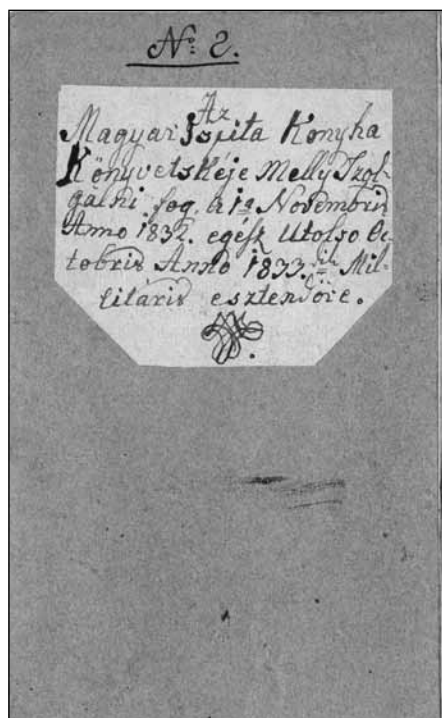 No: 2.
Az
Magyar Ispita Konyha
Könyvetskéje Melly Szol-
gálni fog, a 1a Novembris
Anno 1832. egész Utolso Oc-
tobris Anno 1833.ik Mil-
litáris esztendőre.